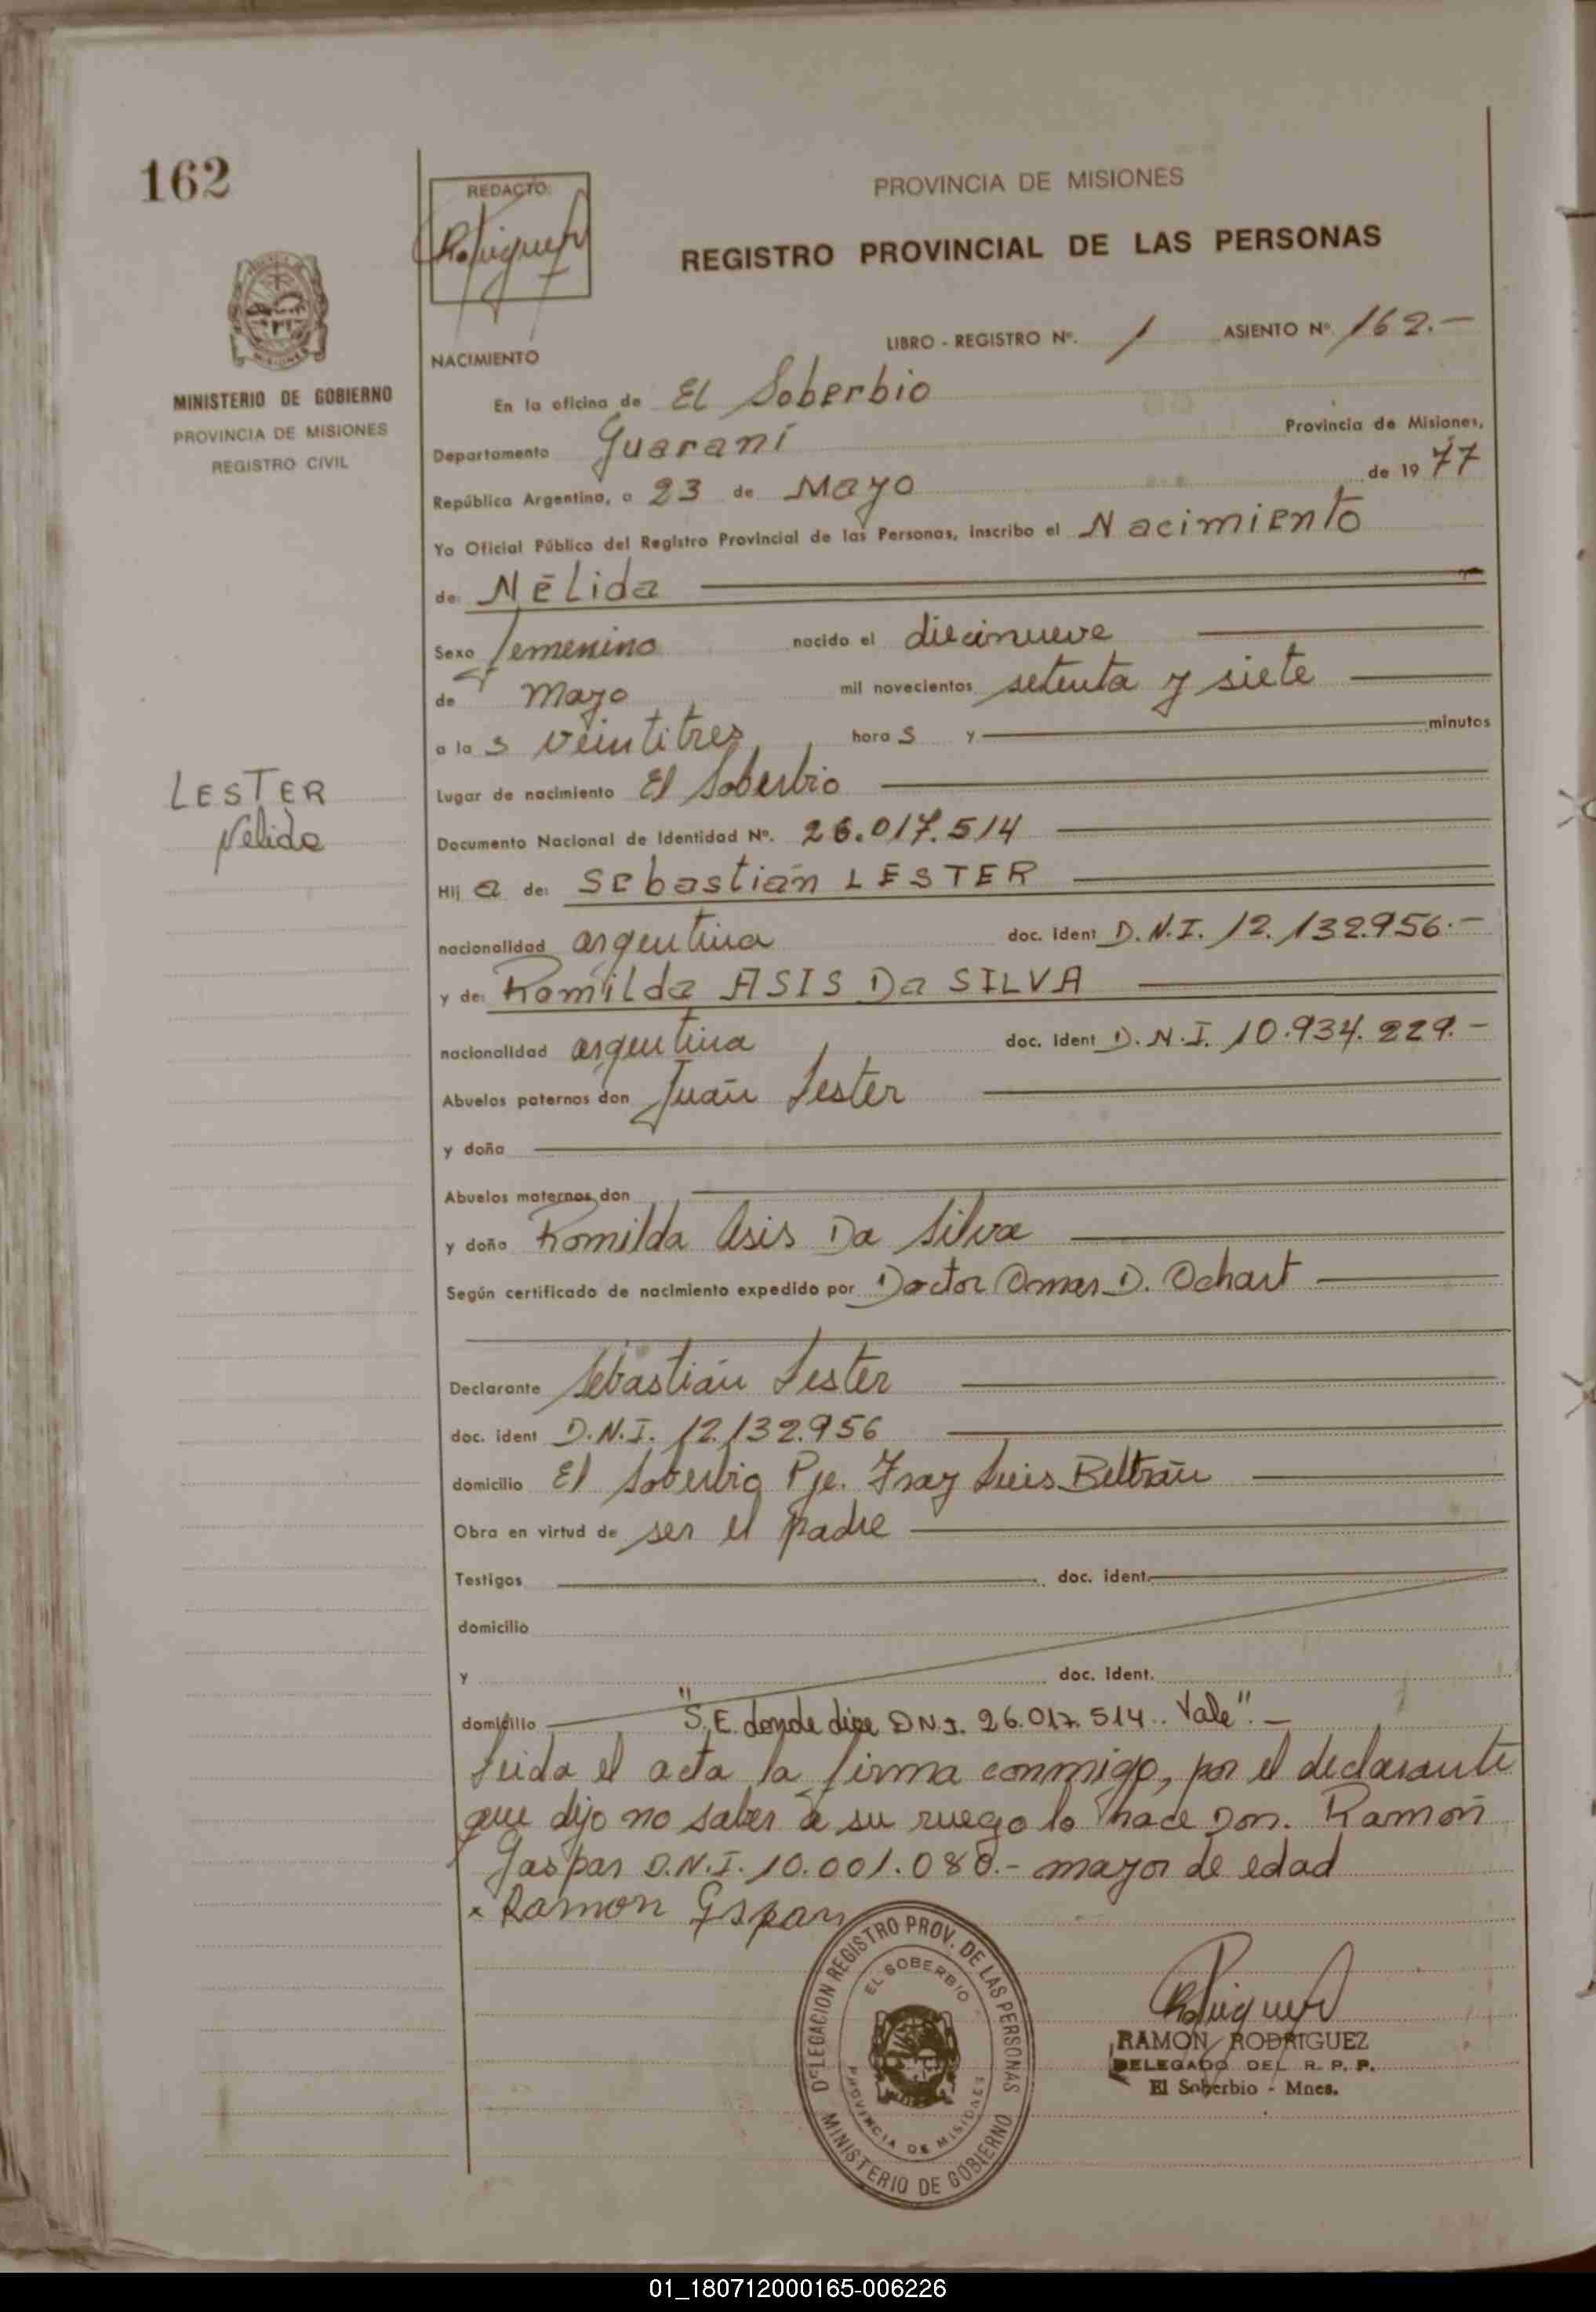 162
REDACTO:
PROVINCIA DE MISIONES
REGISTRO PROVINCIAL DE LAS PERSONAS
MINISTERIO DE GOBIERNO
PROVINCIA DE MISIONES
REGISTRO CIVIL
LIBRO - REGISTRO Nº. 1 ASIENTO Nº. 162.-
NACIMIENTO
En la oficina de El Soberbio
Departamento Guaraní Provincia de Misiones,
República Argentina, a 23 de Mayo de 1977
Yo Oficial Público del Registro Provincial de las Personas, inscribo el Nacimiento
de: Nélida
Sexo femenino nacido el diecinueve
de mayo mil novecientos setenta y siete
a las veintitres horas y minutos
LESTER
Nelida
Lugar de nacimiento El Soberbio
Documento Nacional de Identidad Nº. 26.017.514
Hija de: Sebastián LESTER
nacionalidad argentina doc. ident D.N.I. 12.132.956.-
y de: Romilda ASIS Da SILVA
nacionalidad argentina doc. ident D.N.I. 10.934.229.-
Abuelos paternos don Juan Lester
y doña
Abuelos maternos don
y doña Romilda Asis Da Silva
Según certificado de nacimiento expedido por Doctor Omar D. Ochart
Declarante Sebastián Lester
doc. ident D.N.I. 12.132.956
domicilio El Soberbio Pje. Fray Luis Beltrán
Obra en virtud de ser el padre
Testigos doc. ident.
domicilio
y doc. ident.
domicilio "S.E. donde dice D.N.I. 26.017.514.. Vale".-
Leida el acta la firma conmigo, por el declarante
que dijo no saber a su ruego lo hace Don. Ramón
Gaspar D.N.I. 10.001.080.- mayor de edad
x Ramon Gspar
DELEGACION REGISTRO PROV. DE LAS PERSONAS
EL SOBERBIO
PROVINCIA DE MISIONES
MINISTERIO DE GOBIERNO
RAMON RODRIGUEZ
DELEGADO DEL R. P. P.
El Soberbio - Mnes.
01_180712000165-006226